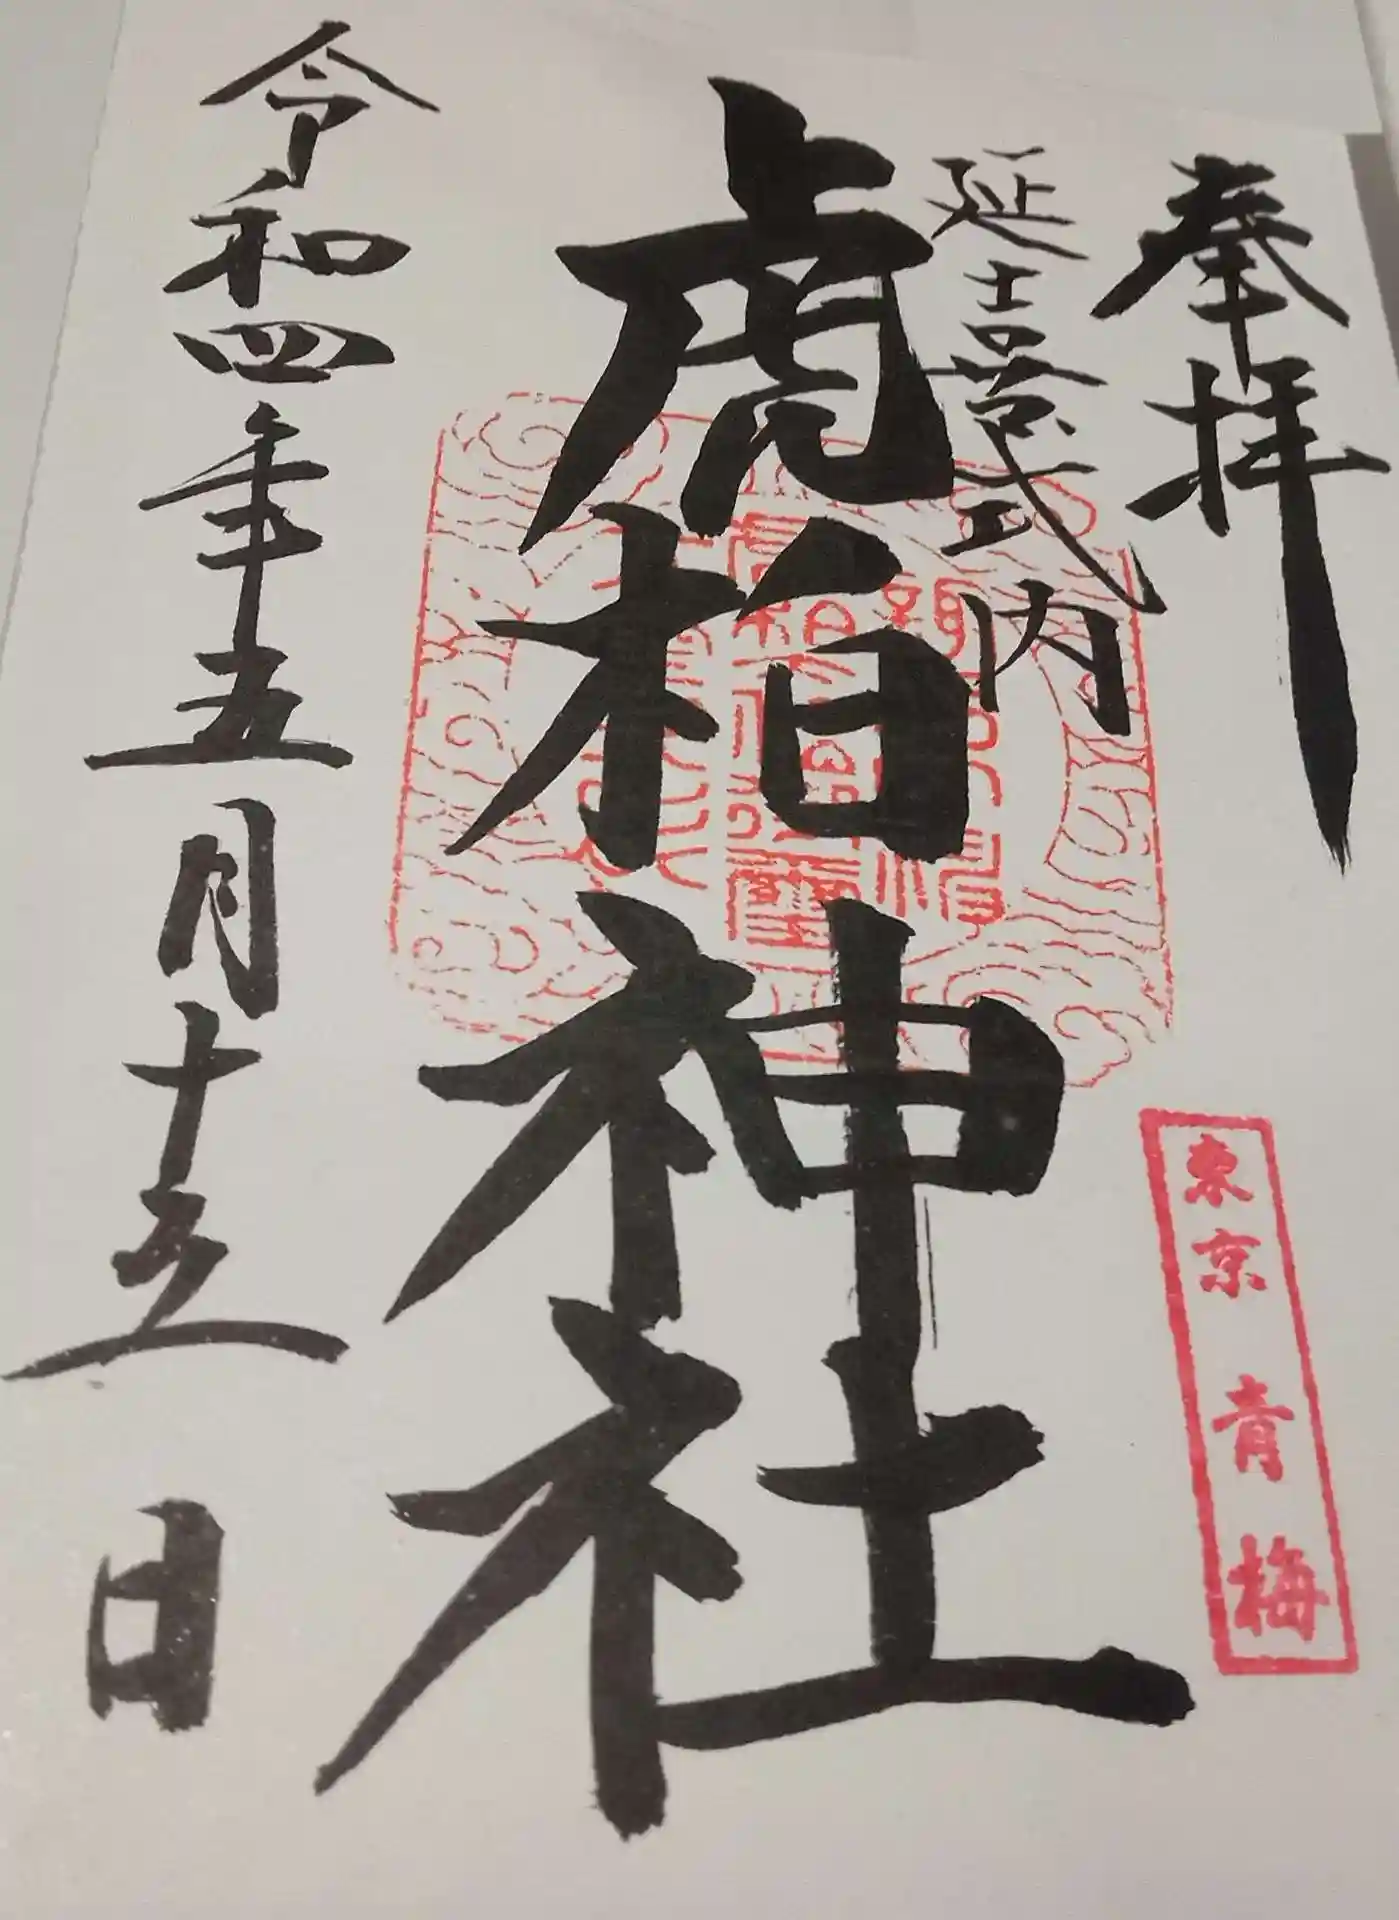 奉拝
延喜式内
虎柏神社
令和四年五月十五日
東京 青梅